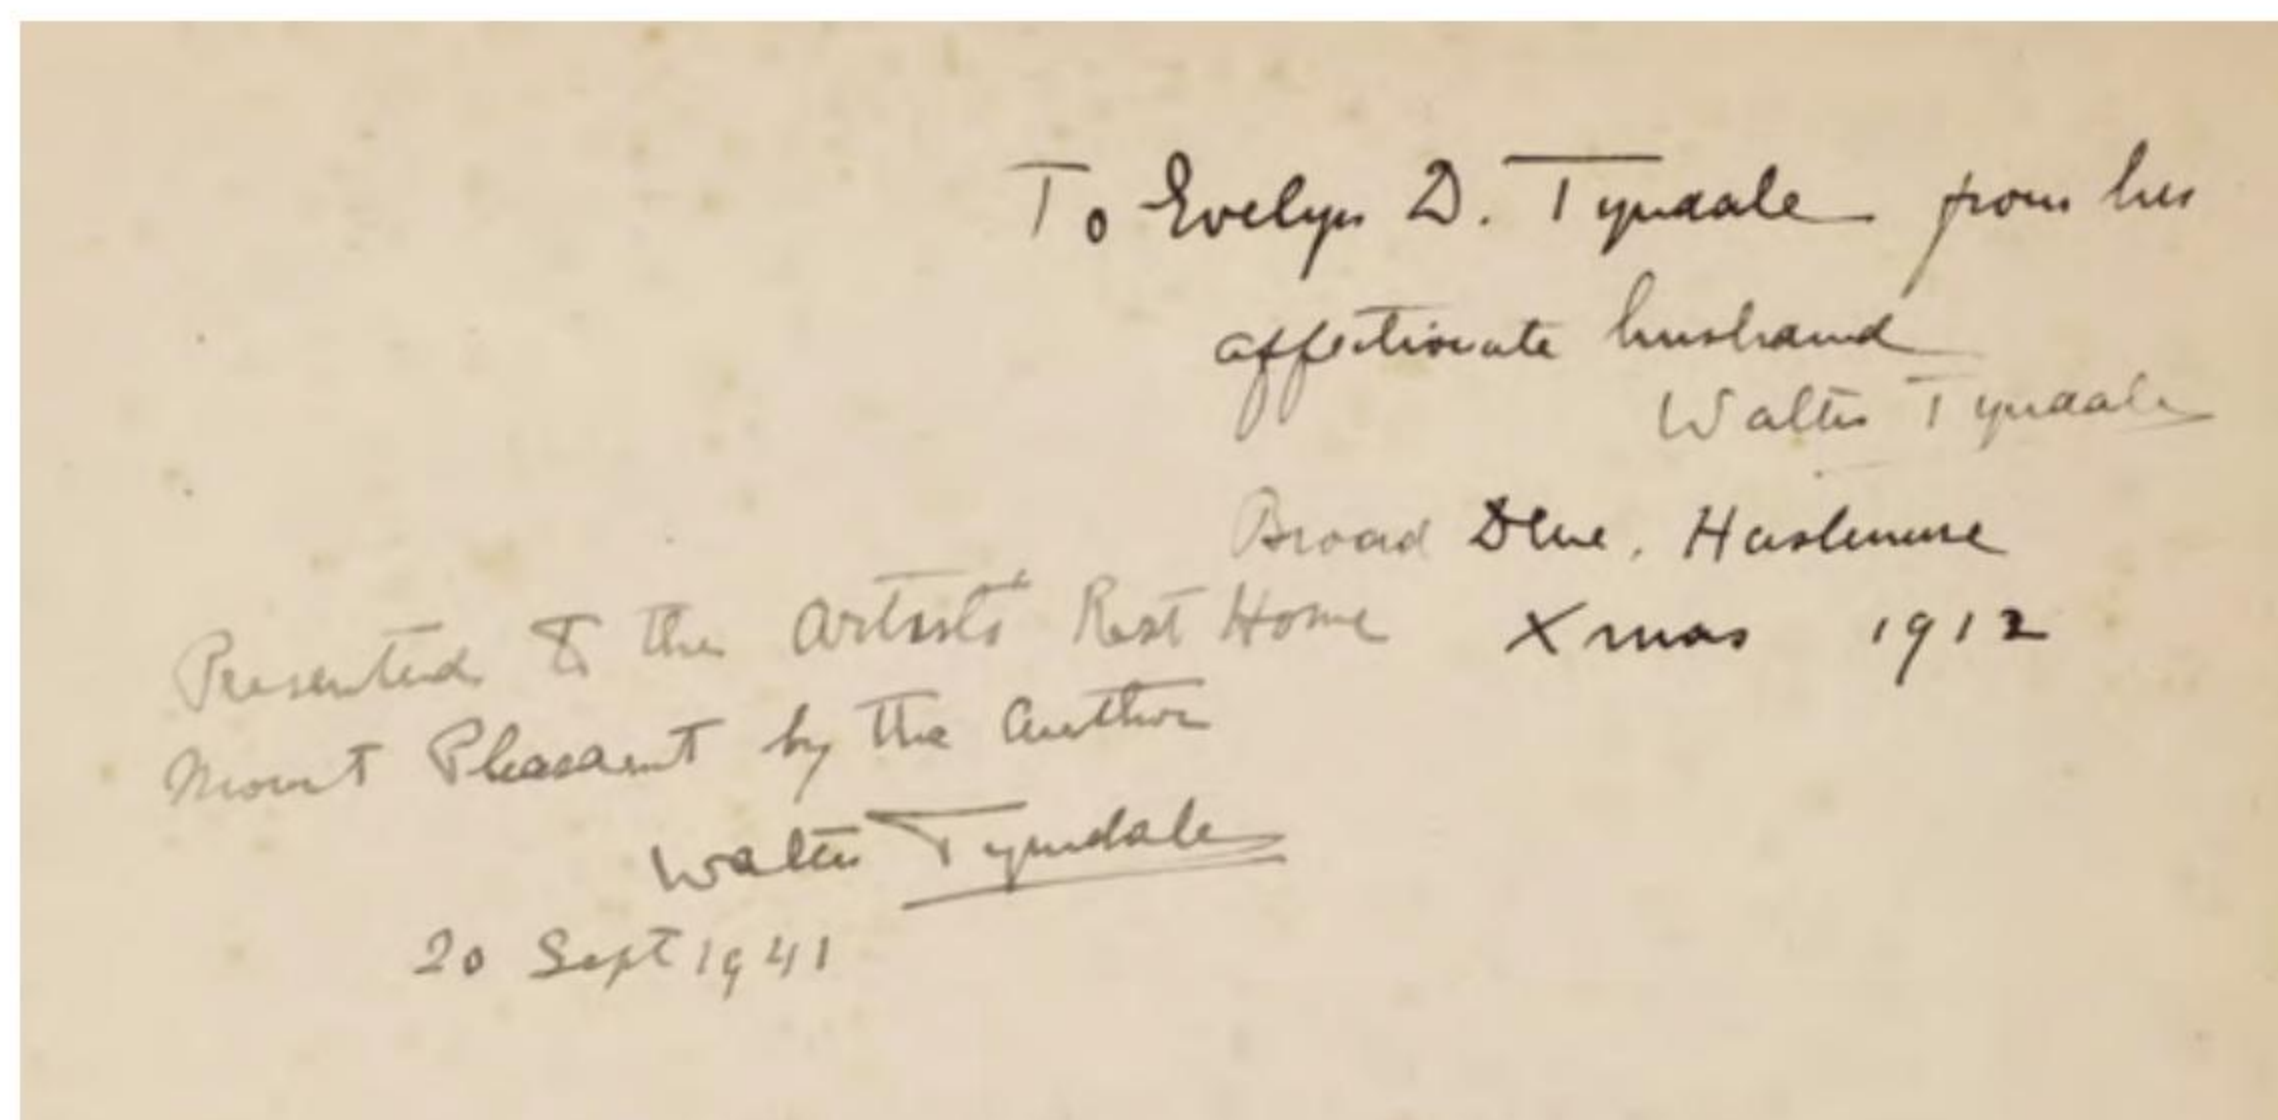 To Evelyn D. Tyndale from her
affectionate husband
Walter Tyndale
Broad Dene, Haslemere
Xmas 1912
Presented to the Artists' Rest Home
Mount Pleasant by the Author
Walter Tyndale
20 Sept 1941